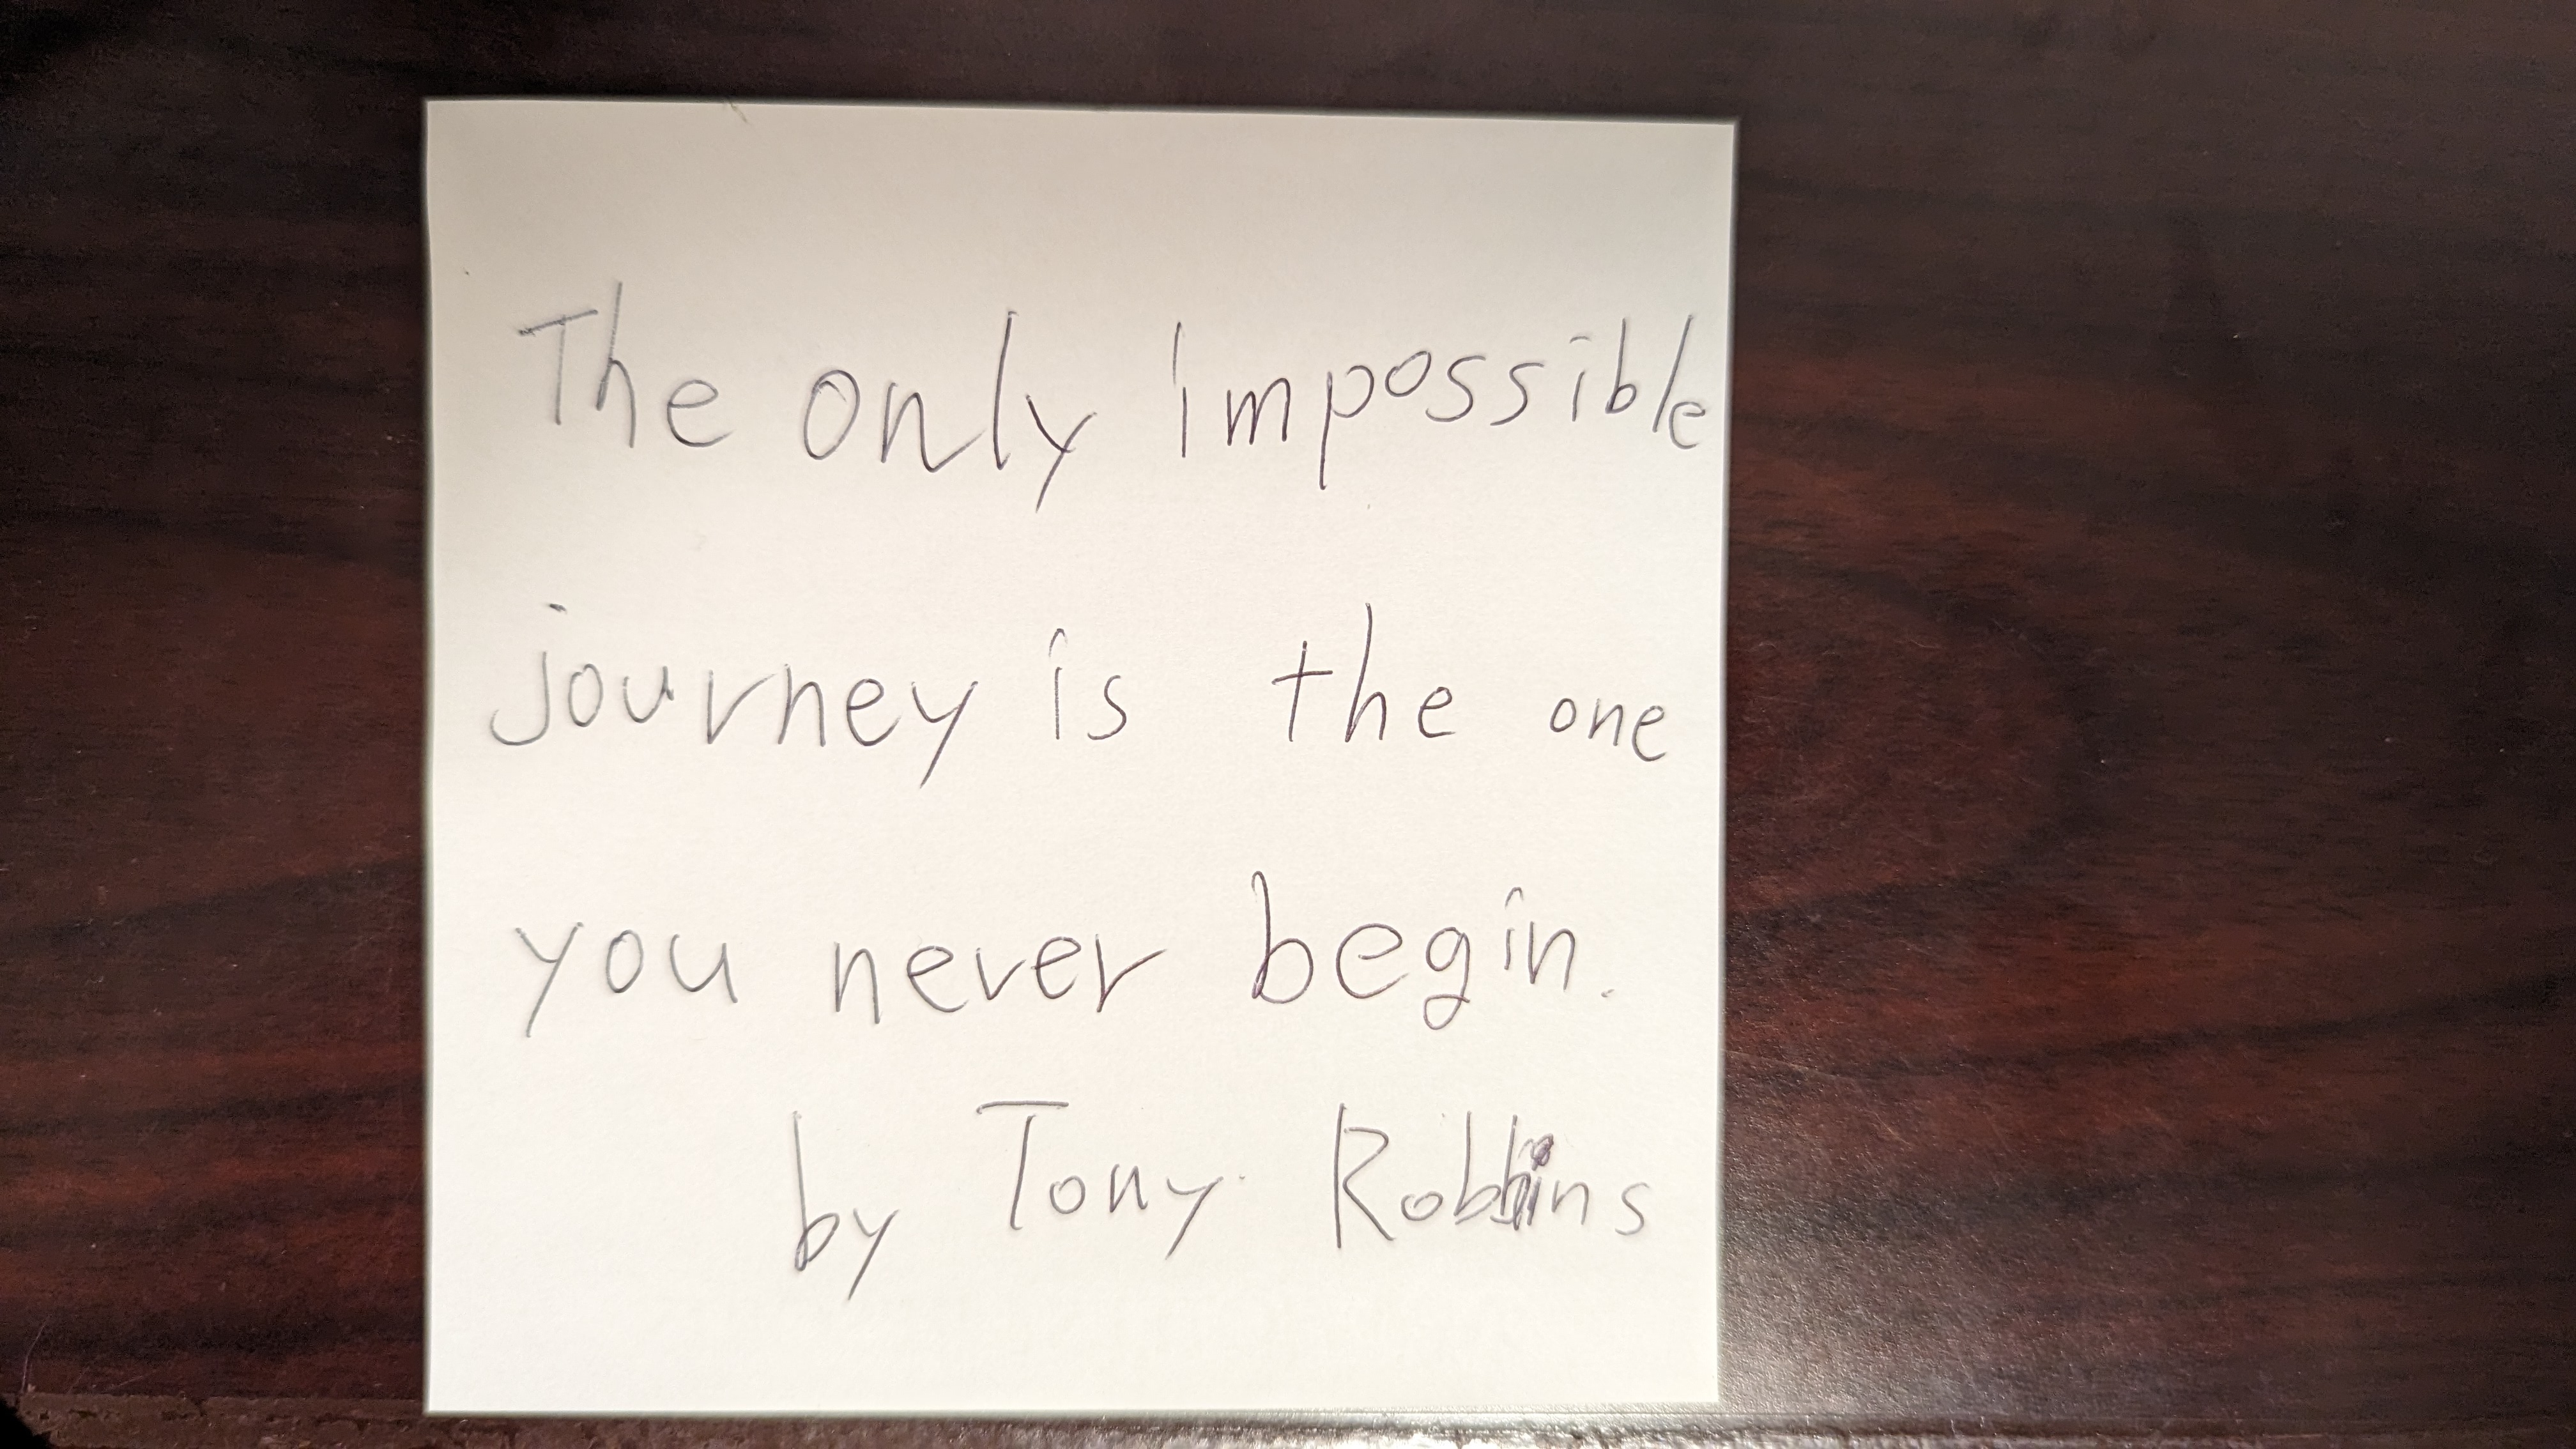 The only impossible
journey is the one
you never begin.
by Tony Robbins